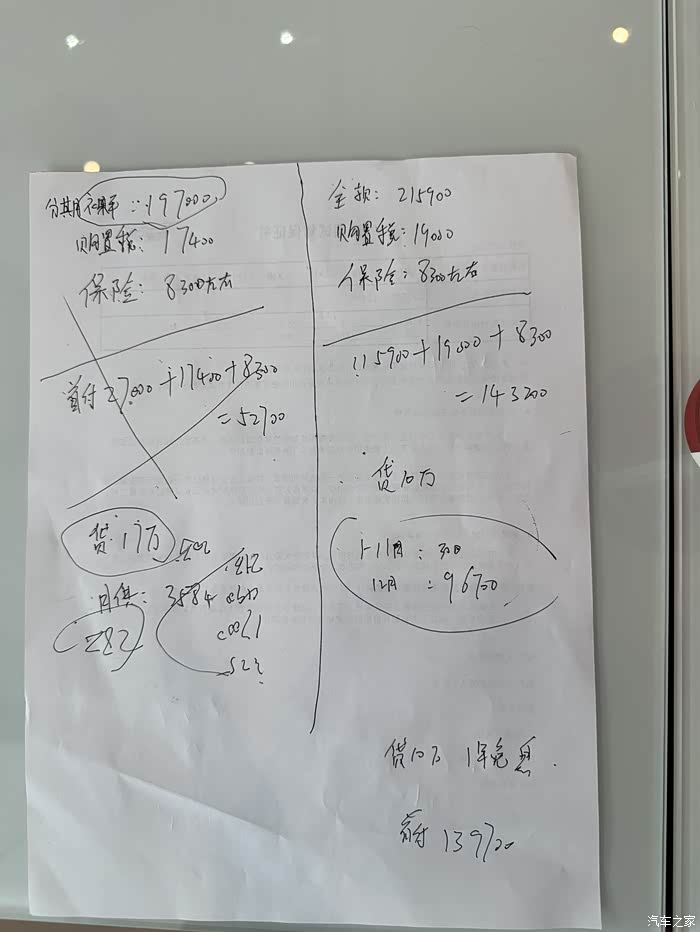 197000
购置税: 17400
保险: 8300左右
首付 27000+17400+8300
=52700
贷17万
月供: 3584
282
全款: 215900
购置税: 19000
保险: 8300左右
115900+19000+8300
=143200
贷10万
1-11月: 300
12月: 96700
贷10万 1年免息.
首付 139700
汽车之家